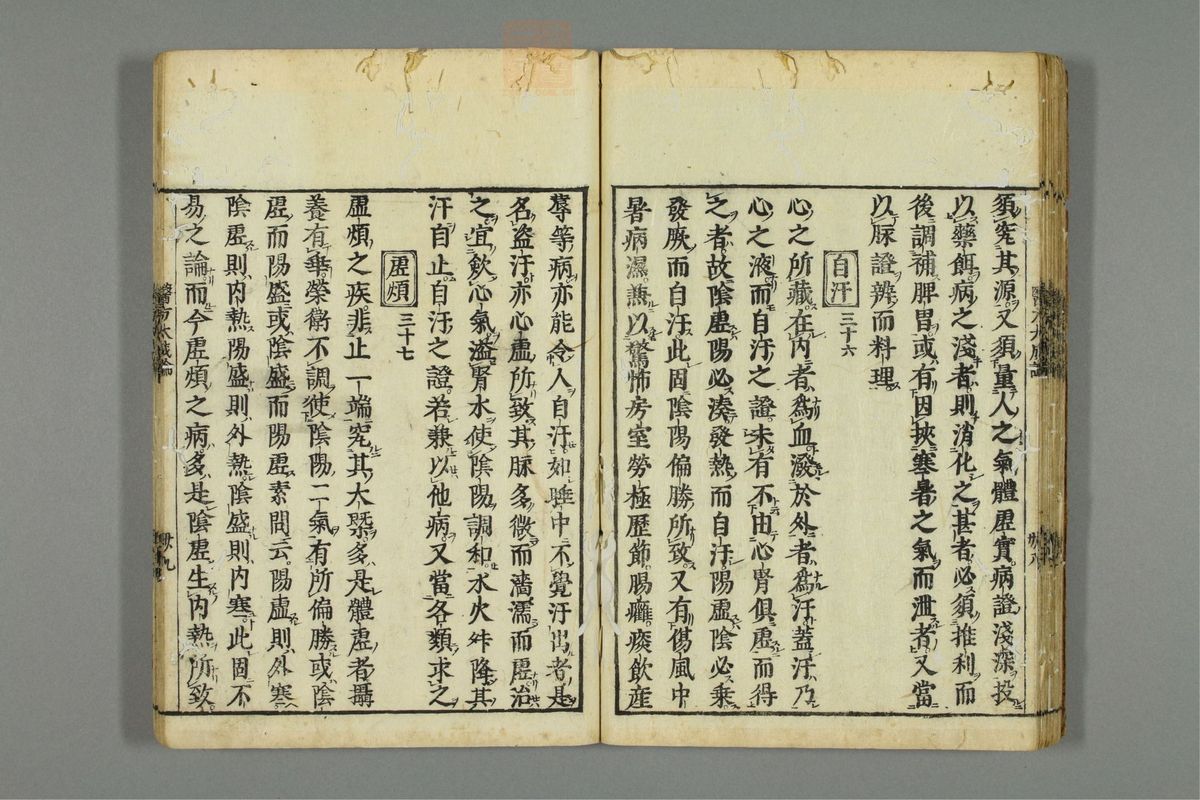 須究其源又須量人之氣體虛實病證淺深投
以藥餌病之淺者則消化之甚者必須推利而
後調補脾胃或有因挾寒暑之氣而泄者又當
以脉證辨而料理
自汗 三十六
心之所藏在内者為血發於外者為汗蓋汗乃
心之液而自汗之證未有不由心腎俱虛而得
之者故陰虛陽必湊發熱而自汗陽虛陰必乘
發厥而自汗此固陰陽偏勝所致又有傷風中
暑病濕兼以驚怖房室勞極歷節腸癰痰飲産
蓐等病亦能令人自汗如睡中不覺汗出者是
名盗汗亦心虛所致其脉多微而濇濡而虛治
之宜歛心氣溢腎水使陰陽調和水火升降其
汗自止自汗之證若兼以他病又當各類求之
虛煩 三十七
虛煩之疾非止一端究其大槩多是體虛者攝
養有乖榮衛不調使陰陽二氣有所偏勝或陰
虛而陽盛或陰盛而陽虛素問云陽虛則外寒
陰虛則内熱陽盛則外熱陰盛則内寒此固不
易之論而今虛煩之病多是陰虛生内熱所致